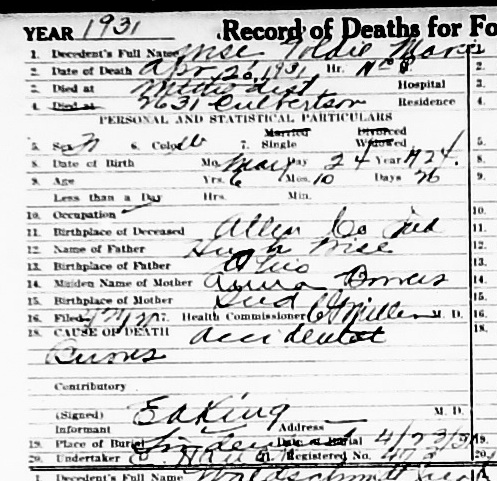 YEAR 1931 Record of Deaths for Fo
1. Decedent's Full Name Wise Goldie Marie 2.
2. Date of Death Apr 26, 1931 Hr. 2.
3. Died at Methodist Hospital 3.
4. Died at 2631 Culbertson Residence 4.
PERSONAL AND STATISTICAL PARTICULARS
Married Divorced
5. Sex F 6. Color W 7. Single Widowed 5.
8. Date of Birth Mo. May Day 24 Year 1924. 8.
9. Age Yrs. 6 Mos. 10 Days 26 9.
Less than a Day Hrs. Min.
10. Occupation 10.
11. Birthplace of Deceased Allen Co Ind 11.
12. Name of Father Hugh Wise 12.
13. Birthplace of Father Ohio 13.
14. Maiden Name of Mother Anna Bowers 14.
15. Birthplace of Mother Ind 15.
16. Filed 17. Health Commissioner M. D. 16.
18. CAUSE OF DEATH accidental 18.
Burns
Contributory
(Signed) E A King M. D.
Informant Address
19. Place of Burial Date of Burial 4/23/31 19.
20. Undertaker 21. Registered No. 473 20.
1. Decedent's Full Name Waldschmidt 1